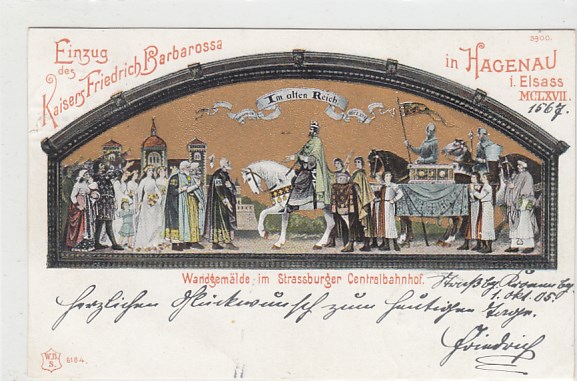 Einzug
des
Kaisers Friedrich Barbarossa
in HAGENAU
i. Elsass
MCLXVII.
1567.
5900.
Im alten Reich
Wandgemälde im Strassburger Centralbahnhof.
1. Okt. 05
herzlichen Glückwunsch zum heutigen
Tage.
Friedrich
W.B.
S.
6184.